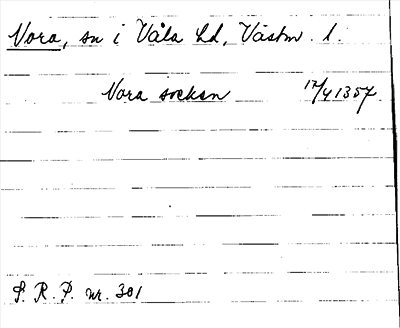 Nora, sn i Våla hd, Västm. l.
Nora socken 17/4 1357.
S. R. P. nr. 301